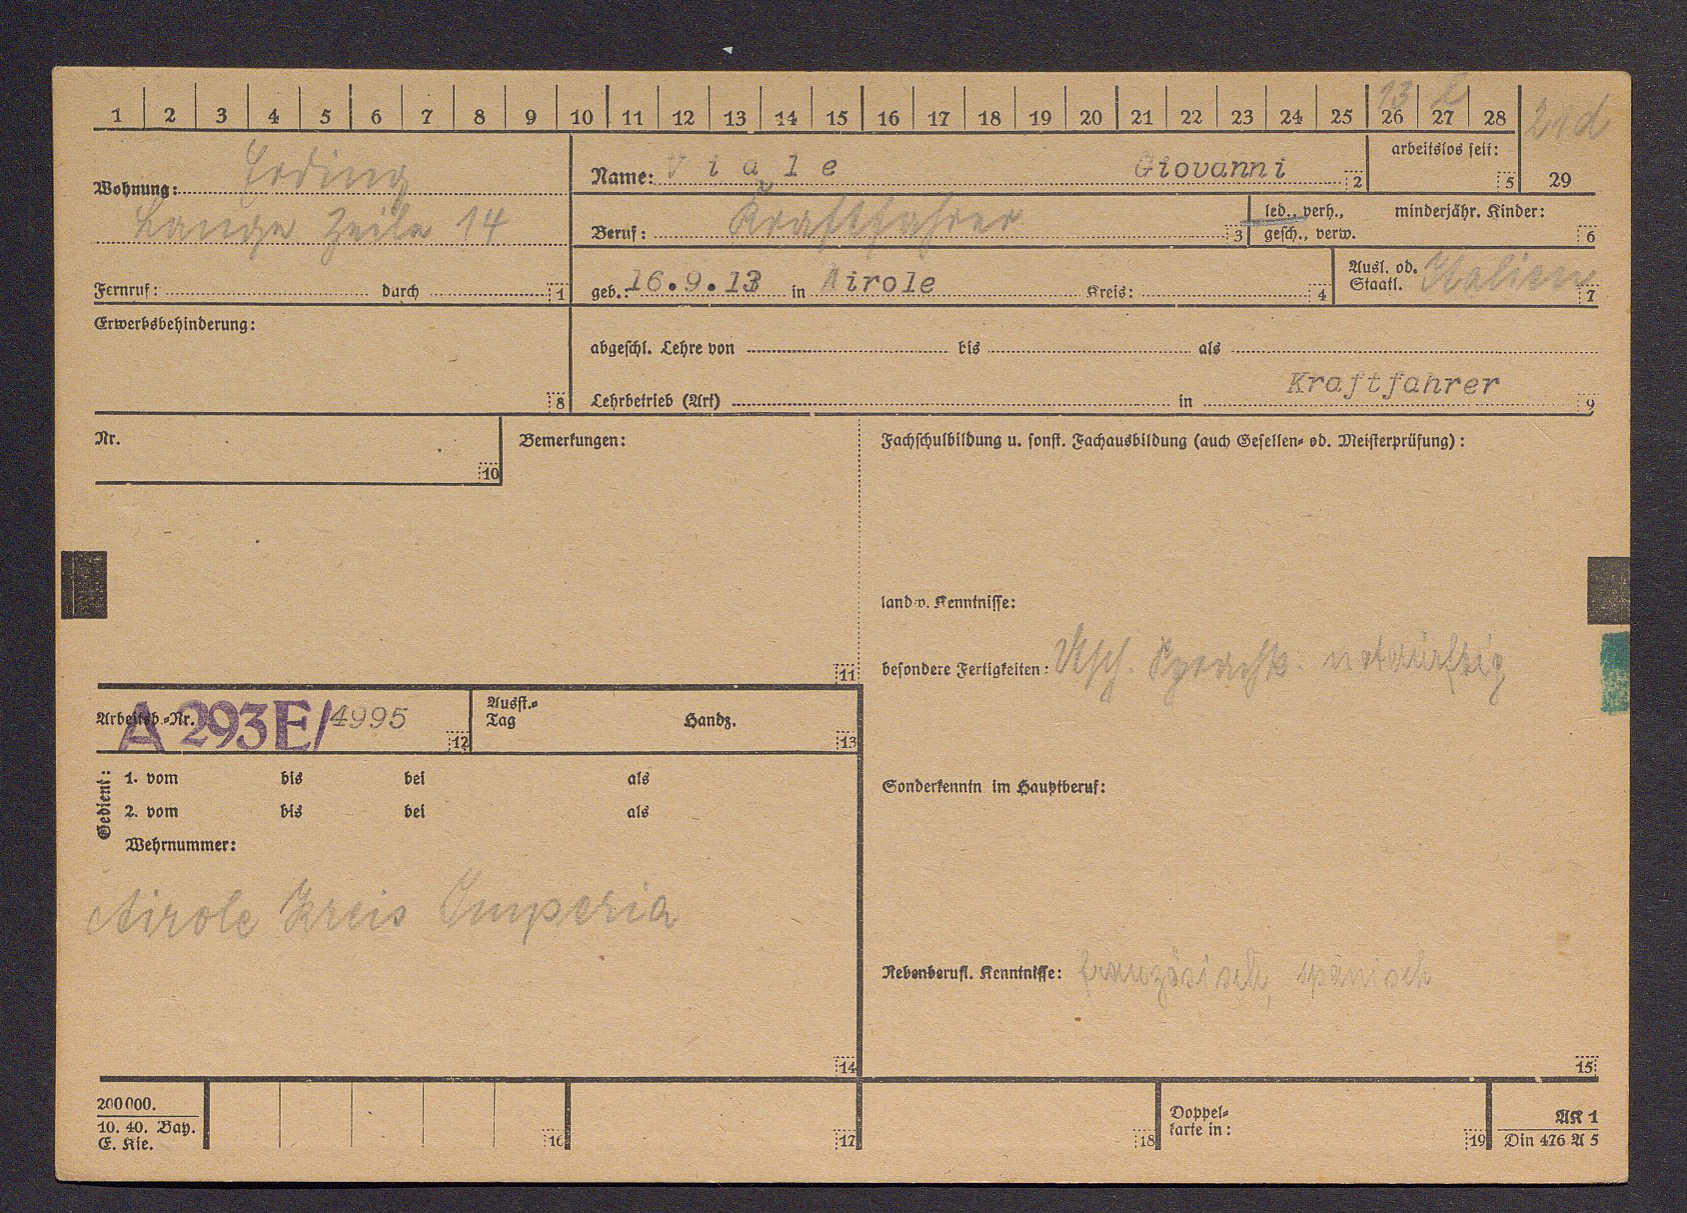 1 2 3 4 5 6 7 8 9 10 11 12 13 14 15 16 17 18 19 20 21 22 23 24 25 26 27 28
13
21d
29
Wohnung: Erding
Lange Zeile 14
Fernruf: durch 1
Name: Viale Giovanni 2
arbeitslos seit: 5
Beruf: Kraftfahrer 3
led., verh., gesch., verw.
minderjähr. Kinder: 6
geb.: 16.9.13 in Airole Kreis: 4
Ausl. od. Staatl. Italien 7
Erwerbsbehinderung: 8
abgeschl. Lehre von bis als
Kraftfahrer
Lehrbetrieb (Art) in 9
Nr. 10
Bemerkungen: 11
Fachschulbildung u. sonst. Fachausbildung (auch Gesellen- od. Meisterprüfung):
landw. Kenntnisse:
besondere Fertigkeiten: notdürftig
Arbeitsb.-Nr. A 293E/4995 12
Ausst.-Tag Handz. 13
Gedient:
1. vom bis bei als
2. vom bis bei als
Wehrnummer:
Airole Kreis Imperia
14
Sonderkenntn. im Hauptberuf:
Nebenberufl. Kenntnisse: französisch, spanisch
15
200000.
10. 40. Bay.
E. Kle.
16 17 18
Doppel-
karte in: 19
AK 1
Din 476 A 5